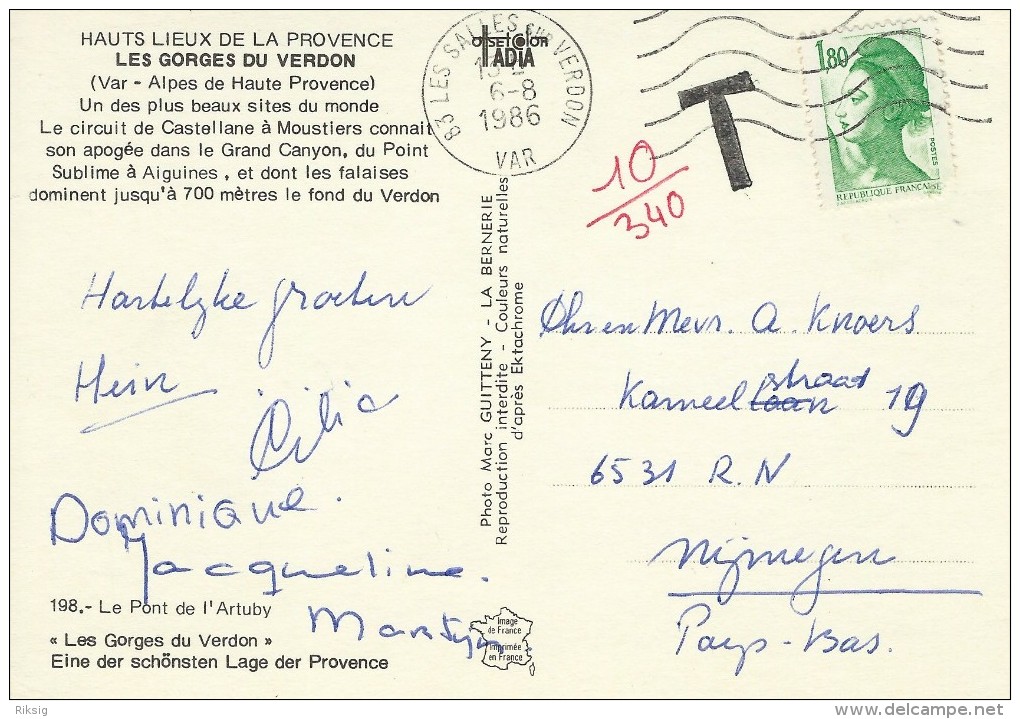 HAUTS LIEUX DE LA PROVENCE
LES GORGES DU VERDON
(Var - Alpes de Haute Provence)
Un des plus beaux sites du monde
Le circuit de Castellane à Moustiers connait
son apogée dans le Grand Canyon, du Point
Sublime à Aiguines, et dont les falaises
dominent jusqu'à 700 mètres le fond du Verdon
83 LES SALLES SUR VERDON
6-8
1986
VAR
OFFSETCOLOR
IADIA
T
10
340
1,80
POSTES
REPUBLIQUE FRANÇAISE
Hartelyke groeten
Hein
Cilia
Dominique.
Jacqueline.
Martyn
198.- Le Pont de l'Artuby
« Les Gorges du Verdon »
Eine der schönsten Lage der Provence
Photo Marc GUITTENY - LA BERNERIE
Reproduction interdite - Couleurs naturelles
d'après Ektachrome
Image
de France
Imprimée
en France
Dhr en Mevr. A. Knoers
straat
Karneel laan 19
6531 R.N
Nijmegen
Pays-Bas.
Riksig
delcampe.net